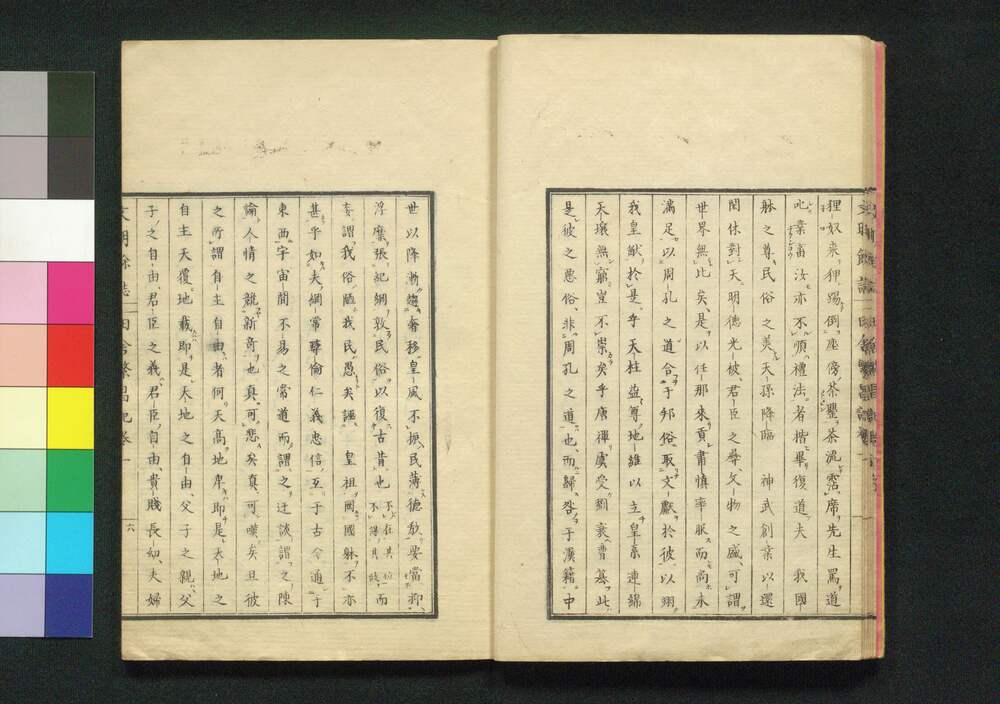 狸奴来狎踢倒座傍茶罌茶流霑席先生罵道
叱業畜汝亦不順禮法者楷畢復道夫　我國
躰之尊民俗之美天孫降臨　神武創業以還
閒休對天明德光被君臣之尋文物之盛可謂
世界無比矣是以任那来貢肅慎率服而尚未
滿足以周孔之道合于邦俗取文獻於彼以翊
我皇猷於是乎天柱益尊地維以立皇系連綿
天壤無窮豈不崇矣乎唐禅虞受劉衰曹簒此
是彼之惡俗非周孔之道也而歸咎于漢籍中
世以降漸趨奢移皇風不振民薄德敖要當抑
浮靡張紀綱敦民俗以復古昔也不在其位不謀其政而
妄謂我俗陋我民愚矣誣　皇祖罔國躰不亦
甚乎如夫綱常彝倫仁義忠信亙于古今通于
東西宇宙間不易之常道而謂之迂談謂之陳
諭人情之競新奇也真可悲矣真可嘆矣且彼
之所謂自主自由者何天高地卑即是天地之
自主天覆地載即是天地之自由父子之親父
子之自由君臣之義君臣自由貴賤長幼夫婦
田舎繁昌記巻一　六